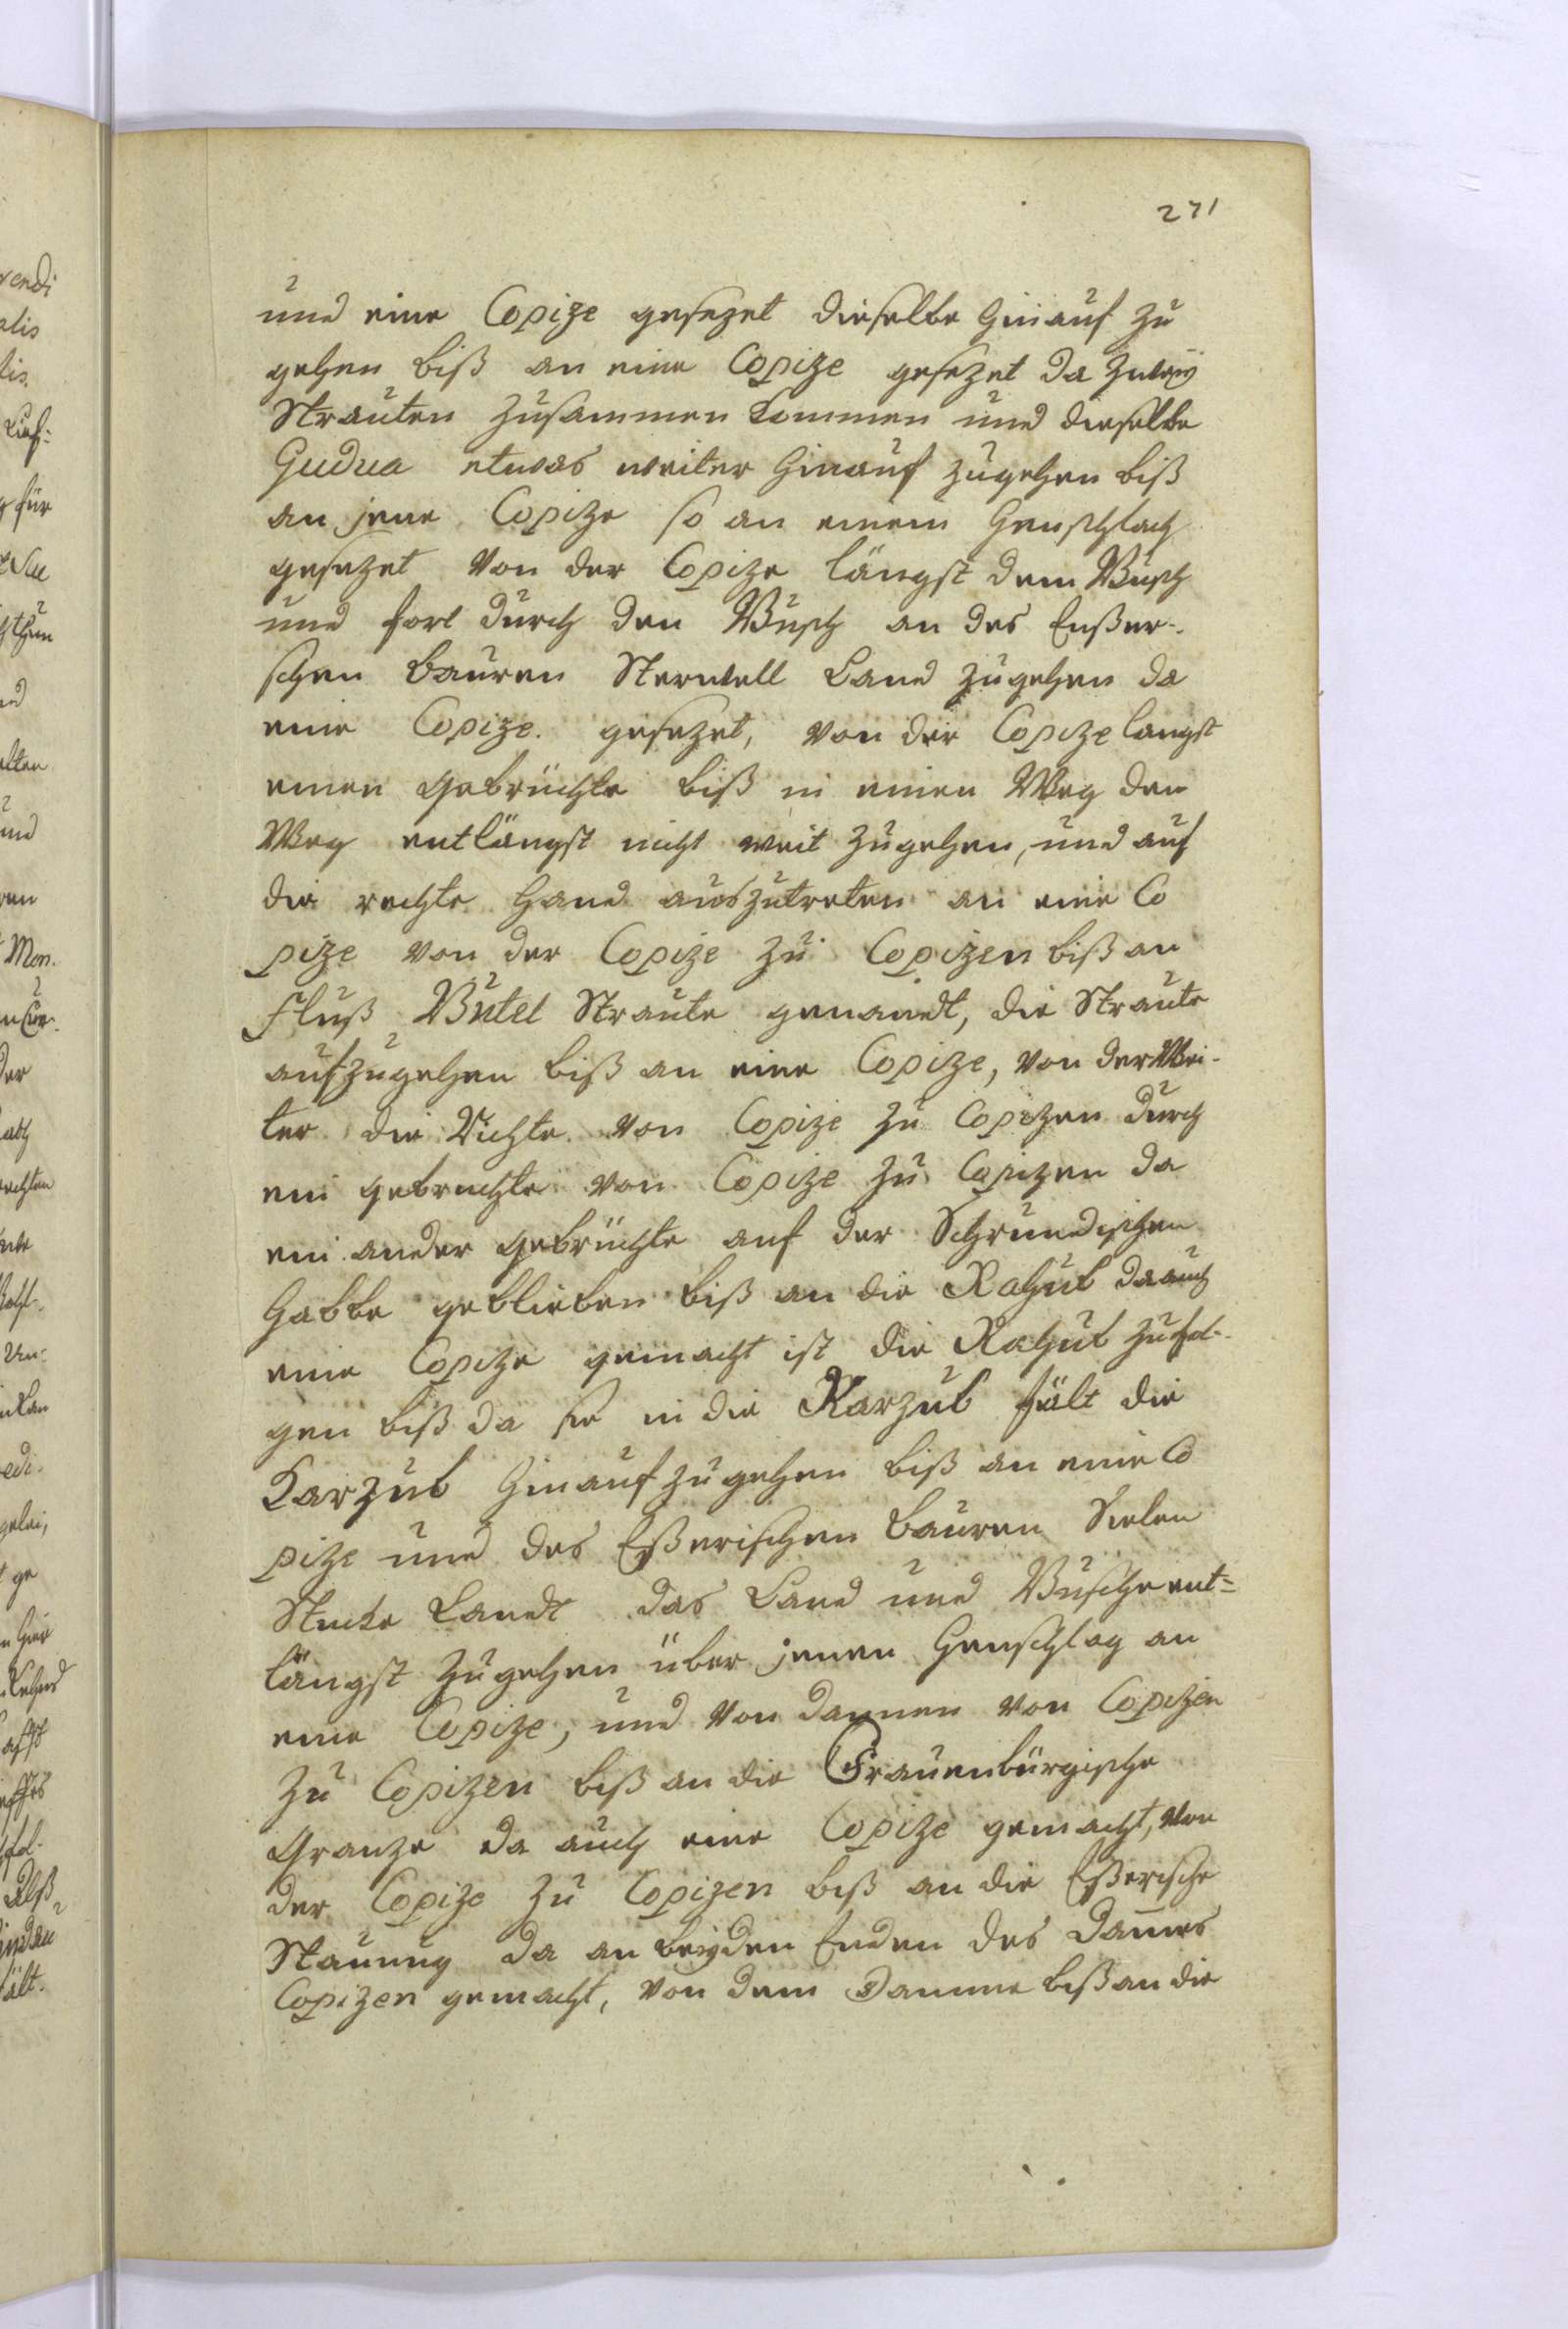 271
und eine Copize gesezet dieselbe hinauf zu
gehen biß an eine Copize gesezet da zweÿ
Strauten zusammen kommen und dieselbe
Gudua etwas weiter hinauf zugehen biß
an jene Copize so an einem Heuschlach
gesezet von der Copize längst dem Busch
und fort durch den Busch an des Enßer-
schen Bauren Sterwell Land zugehen da
eine Copize gesezet, von der Copize langst
einen Gebrüchte biß in einen Weg den
Weg entlängst nicht weit zugehen, und auf
die rechte Hand auszutreten an eine Co
pize von der Copize zu Copizen biß an
Fluß Butel Straute genandt, die Straute
aufzugehen biß an eine Copize, von der Wei-
ter die Richte von Copize zu Copizen durch
ein gebruchte von Copize zu Copizen da
ein ander Gebrüchte auf der Schrundischen
Gabbe geblieben biß an die Rahub da auch
eine Copize gemacht ist die Rahub zu fol-
gen biß da sie in die Karzub fält die
Karzub hinauf zugehen biß an eine Co
pize und des Eßerischen Bauren Sielen
Stucke Landt das Land und Busche ent=
längst zugehen über jenen Heuschlag an
eine Copize, und von dannen von Copizen
zu Copizen biß an die Frauenbürgische
Granze da auch eine Copize gemacht, von
der Copize zu Copizen biß an die Eßerische
Stauung da an beyden Enden des Dames
Copizen gemacht, von dem Damme biß an die